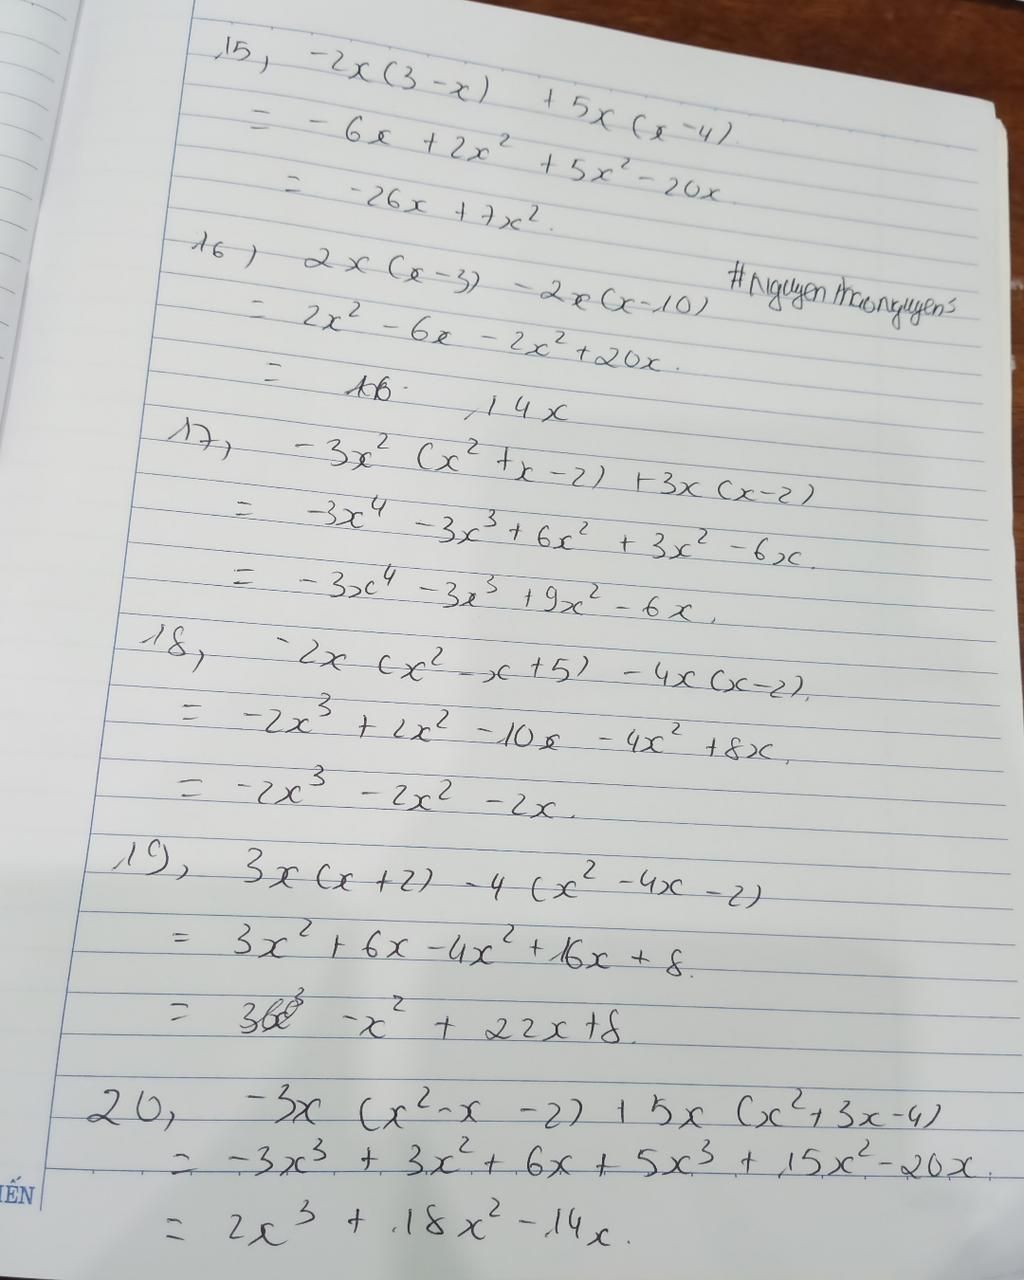 15, -2x(3-x) +5x(x-4)
= -6x +2x² +5x² -20x
= -26x +7x².
16, 2x(x-3) -2x(x-10)
#Nguyenthaonguyens
= 2x² -6x -2x² +20x.
= 14x
17, -3x² (x² +x -2) +3x(x-2)
= -3x⁴ -3x³ +6x² +3x² -6x.
= -3x⁴ -3x³ +9x² -6x.
18, -2x (x² -x +5) -4x(x-2).
= -2x³ +2x² -10x -4x² +8x.
= -2x³ -2x² -2x.
19, 3x(x+2) -4(x² -4x -2)
= 3x² +6x -4x² +16x +8.
= -x² + 22x +8.
20, -3x (x² -x -2) + 5x (x² +3x -4)
= -3x³ + 3x² + 6x + 5x³ + 15x² -20x.
IẾN
= 2x³ + 18x² -14x.